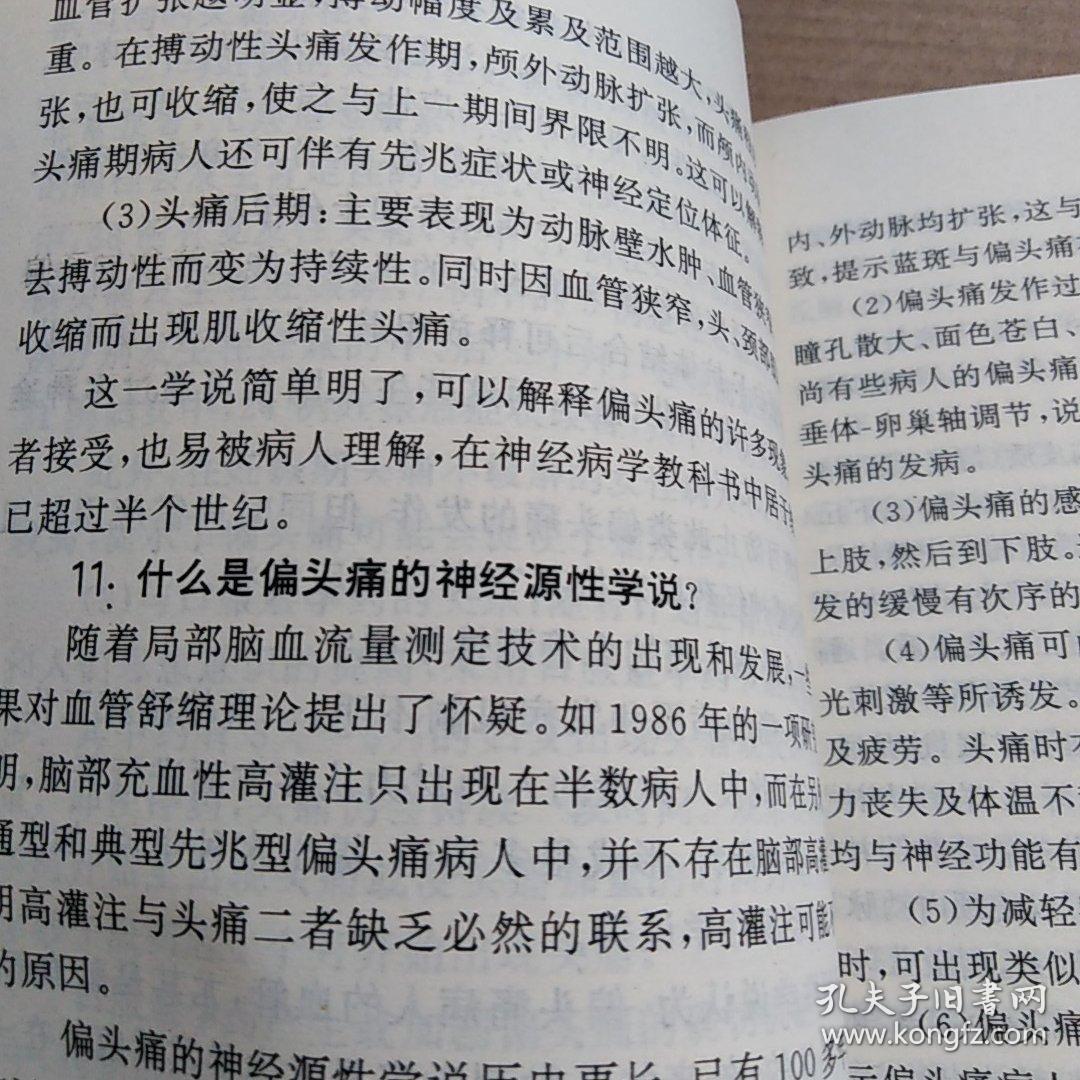 血管扩张越明显,搏动幅度及累及范围越大,头痛
重。在搏动性头痛发作期,颅外动脉扩张,而颅内
张,也可收缩,使之与上一期间界限不明。这可以解
头痛期病人还可伴有先兆症状或神经定位体征。
(3)头痛后期:主要表现为动脉壁水肿、血管狭
去搏动性而变为持续性。同时因血管狭窄,头、颈部
收缩而出现肌收缩性头痛。
这一学说简单明了,可以解释偏头痛的许多现象
者接受,也易被病人理解,在神经病学教科书中居于
已超过半个世纪。
11. 什么是偏头痛的神经源性学说?
随着局部脑血流量测定技术的出现和发展,一
果对血管舒缩理论提出了怀疑。如1986年的一项研
明,脑部充血性高灌注只出现在半数病人中,而在另
通型和典型先兆型偏头痛病人中,并不存在脑部高灌
明高灌注与头痛二者缺乏必然的联系,高灌注可能
的原因。
偏头痛的神经源性学说历史更长,已有100多
内、外动脉均扩张,这与
致,提示蓝斑与偏头痛
(2)偏头痛发作过
瞳孔散大、面色苍白、
尚有些病人的偏头痛
垂体-卵巢轴调节,说
头痛的发病。
(3)偏头痛的感
上肢,然后到下肢。
发的缓慢有次序的
(4)偏头痛可
光刺激等所诱发。
及疲劳。头痛时不
力丧失及体温不
均与神经功能有
(5)为减轻
时,可出现类似
(6)偏头痛
示偏头痛病人
孔夫子旧书网
www.kongfz.com